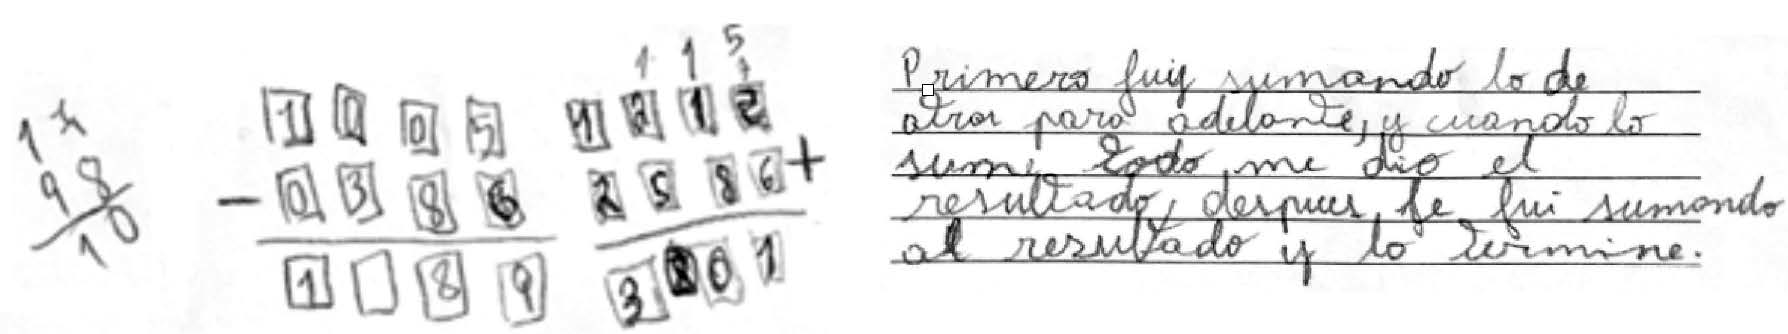 1 1 5
1 0 0 5
1 2 1 2
9 8
- 0 3 8 6
2 5 8 6 +
1 0
1 8 9
3 0 1
Primero fuiy sumando lo de
atras para adelante, y cuando lo
sume todo me dio el
resultado, despues le fui sumando
al resultado y lo termine.